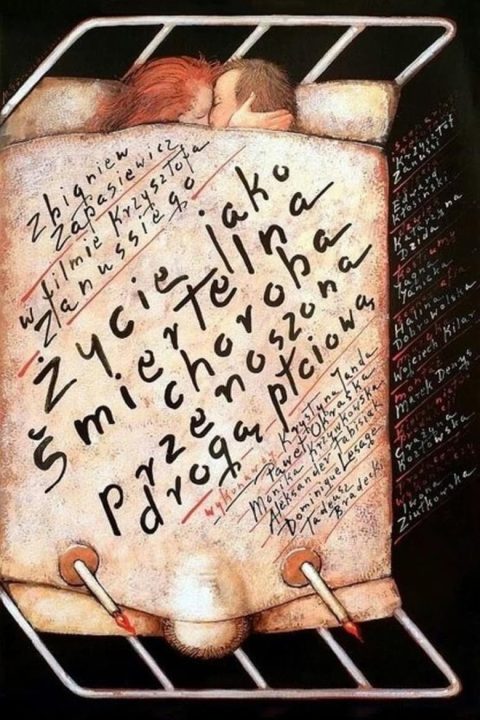 Zbigniew
Zapasiewicz
w filmie Krzysztofa
Zanussiego
Życie jako
śmiertelna
choroba
przenoszona
drogą płciową
wykonawcy Krystyna Janda
Paweł Okraska
Monika Krzywkowska
Aleksander Fabisiak
Dominique Lesage
Tadeusz
Bradecki
Krzysztof
Zanussi
Edward
Kłosiński
Katarzyna
Dzida
kostiumy
Jagna
Janicka
Halina
Dobrowolska
Wojciech Kilar
montaż
Marek Denys
Grażyna
Kozłowska
Iwona
Ziułkowska